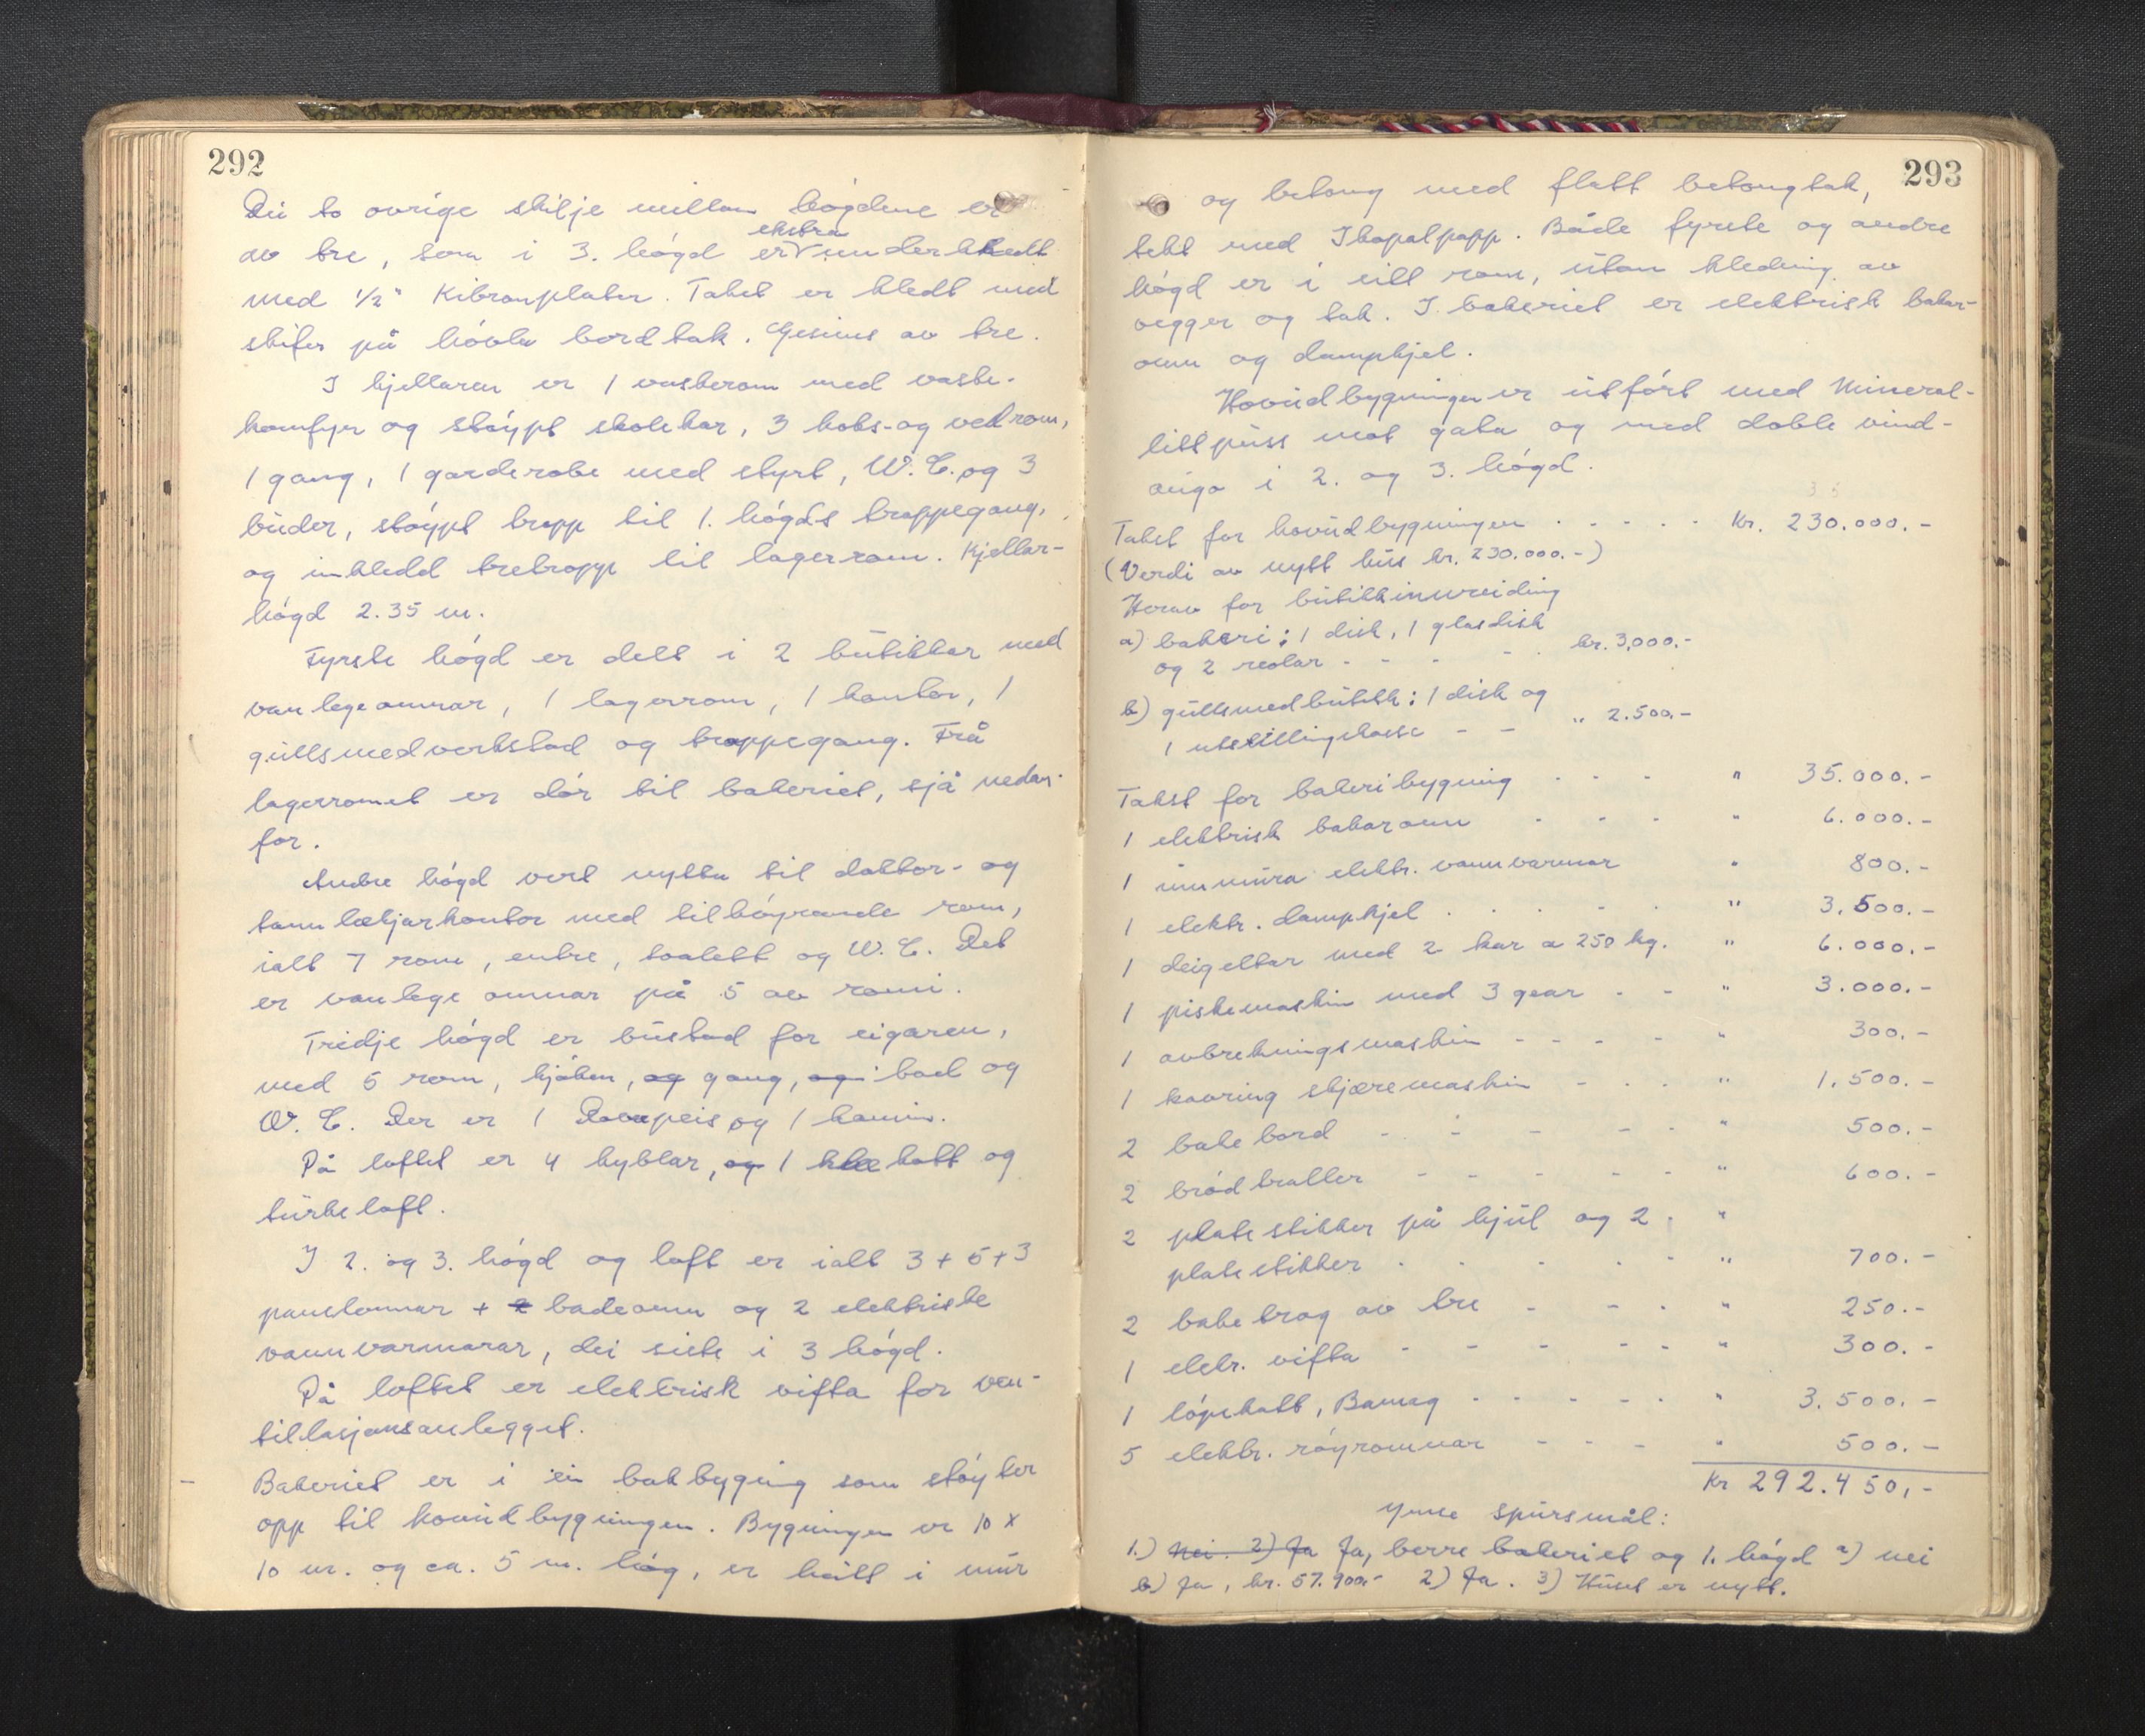 292
Dei to øvrige skilje millom høgdene er
av tre, som i 3. høgd er ekstra underkledt
med 1/2" Kibronplater. Taket er kledt med
skifer på høvla bordtak. Gesims av tre.
I kjellaren er 1 vaskerom med vaske-
komfyr og støypt skolekar, 3 koks- og vedrom,
1 gang, 1 garderobe med styrt, W.C. og 3
buder, støypt trapp til 1. høgds trappegang,
og innkledd tretrapp til lagerrom. Kjellar-
høgd 2.35 m.
Fyrste høgd er delt i 2 butikkar med
vanlege omnar, 1 lagerrom, 1 kontor, 1
gullsmedverkstad og trappegang. Frå
lagerromet er dør til bakeriet, sjå nedan-
for.
Andre høgd vert nytta til doktor- og
tannlækjarkontor med tilhøyrande rom,
ialt 7 rom, entre, toalett og W.C. Det
er vanlege omnar på 5 av romi.
Tridje høgd er bustad for eigaren,
med 5 rom, kjøken, og gang, og bad og
W.C. Der er 1 Dovrepeis og 1 kamin.
På loftet er 4 hyblar, og 1 kott og
turkeloft.
I 2. og 3. høgd og loft er ialt 3 + 5 + 3
panelomnar + 2 badeomn og 2 elektriske
vannvarmarar, dei siste i 3 høgd.
På loftet er elektrisk vifta for ven-
tillasjonsanlegget.
Bakeriet er i ein bakbygning som støyter
opp til hovudbygningen. Bygningen er 10 x
10 m. og ca. 5 m. høg, er heilt i mur
293
og betong med flatt betongtak,
tekt med Ikopalpapp. Både fyrste og andre
høgd er i eitt rom, utan kledning av
vegger og tak. I bakeriet er elektrisk bakar-
omn og dampkjel.
Hovudbygningen er utført med Mineral-
littpuss mot gata og med doble vind-
augo i 2. og 3. høgd.
Takst for hovudbygningen . . . . . Kr. 230.000.-
(Verdi av nytt hus kr. 230.000.-)
Herav for butikkinnreiding
a) bakeri: 1 disk, 1 glasdisk
og 2 reolar - - - - kr. 3,000.-
b) gullsmedbutikk: 1 disk og
1 utstillingskasse - - " 2.500.-
Takst for bakeribygning - - - " 35.000.-
1 elektrisk bakaromn - - - " 6.000.-
1 innmura elektr. vannvarmar " 800.-
1 elektr. dampkjel . . . . . " 3.500.-
1 deigeltar med 2 kar a 250 kg. " 6.000.-
1 piskemaskin med 3 gear - - " 3.000.-
1 avbrekningsmaskin - - - - " 300.-
1 kavring skjæremaskin - - - " 1.500.-
2 bakebord - - - - - " 500.-
2 brødtraller - - - - - " 600.-
2 platestikker på hjul og 2 . "
platestikker . . . . . " 700.-
2 baketrog av tre - - - " 250.-
1 elektr. vifta - - - - - " 300.-
1 løpekatt, Bamag - - - - - " 3.500.-
5 elektr. røyromnar - - - " 500.-
Kr 292.450,-
Ymse spursmål:
1.) Nei. 2) Ja Ja, berre bakeriet og 1. høgd a) nei
b) Ja, kr. 57.900.- 2) Ja. 3) Huset er nytt.